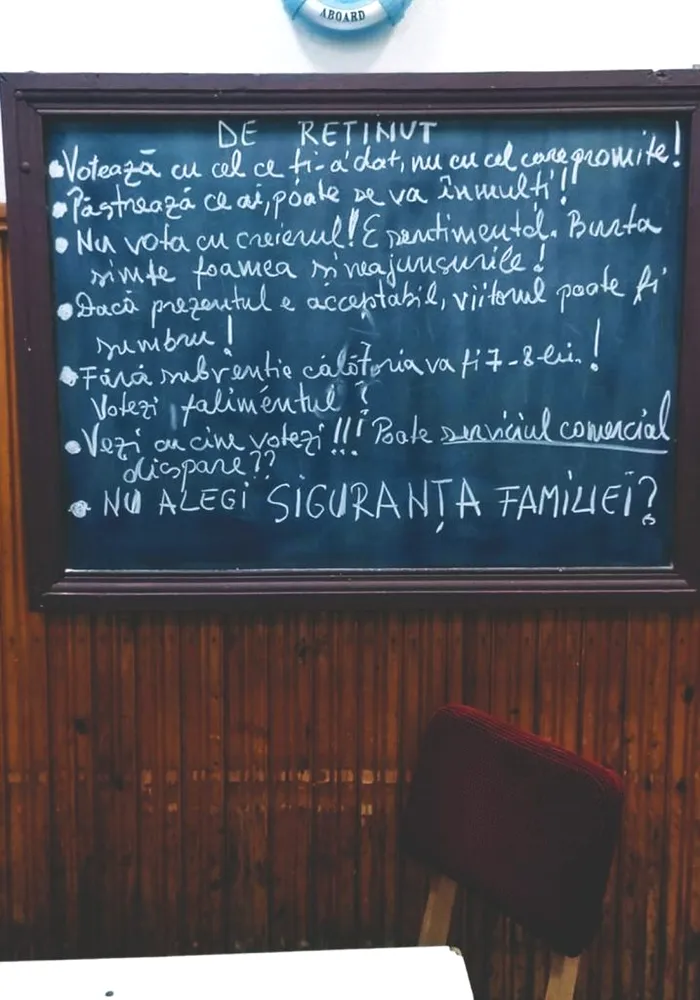 ABOARD
DE REȚINUT
• Votează cu cel ce ți-a dat, nu cu cel care promite!
• Păstrează ce ai, poate se va înmulți!
• Nu vota cu creierul! E sentimental. Burta
simte foamea și neajunsurile!
• Dacă prezentul e acceptabil, viitorul poate fi
sumbru!
• Fără subvenție călătoria va fi 7-8 lei.!
Votezi falimentul?
• Vezi cu cine votezi!!! Poate serviciul comercial
dispare??
• NU ALEGI SIGURANȚA FAMILIEI?